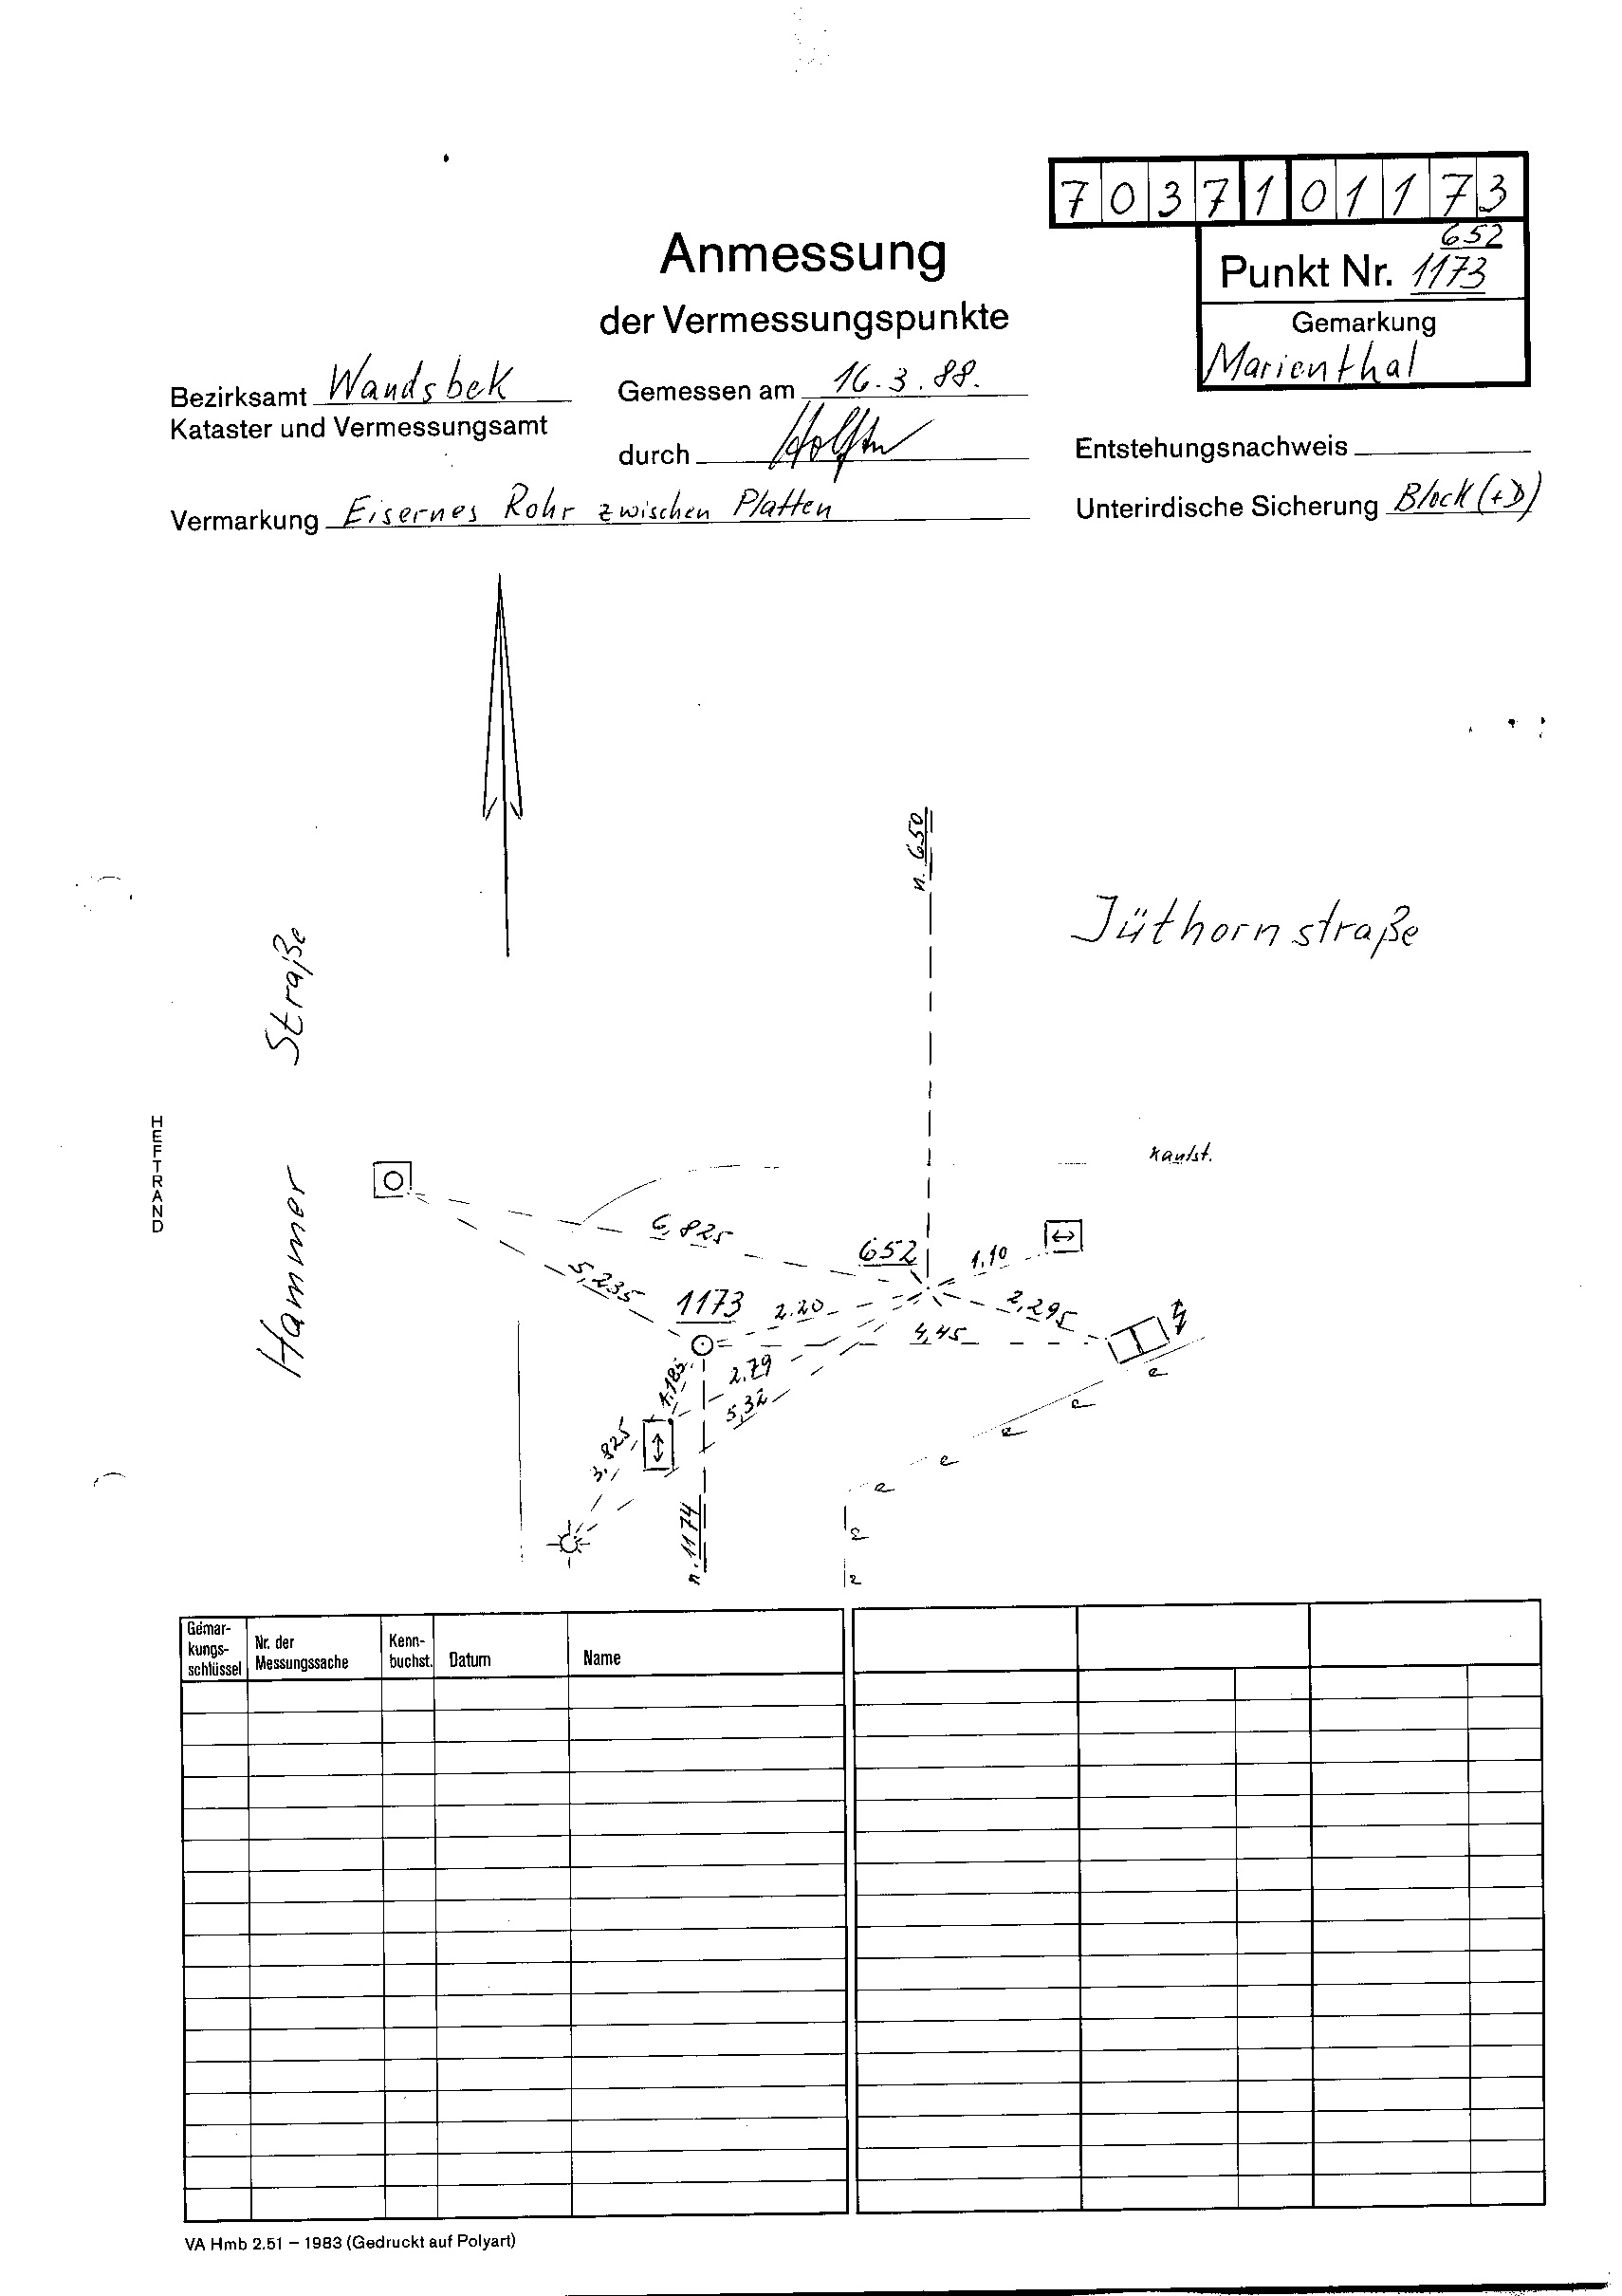 7037101173
Anmessung
der Vermessungspunkte
652
Punkt Nr. 1173
Gemarkung
Marienthal
Bezirksamt Wandsbek
Kataster und Vermessungsamt
Gemessen am 16.3.88.
durch
Entstehungsnachweis
Vermarkung Eisernes Rohr zwischen Platten
Unterirdische Sicherung Block (+D)
n. 650
Jüthornstraße
Hammer Straße
HEFTRAND
Kantst.
6,825
652
1,10
5,235
1173
2.20
2,295
4,45
1,185
2.79
5,32
3,825
e
e
e
e
e
e
e
n. 1174
Gemar-
kungs-
schlüssel
Nr. der
Messungssache
Kenn-
buchst.
Datum
Name
VA Hmb 2.51 – 1983 (Gedruckt auf Polyart)